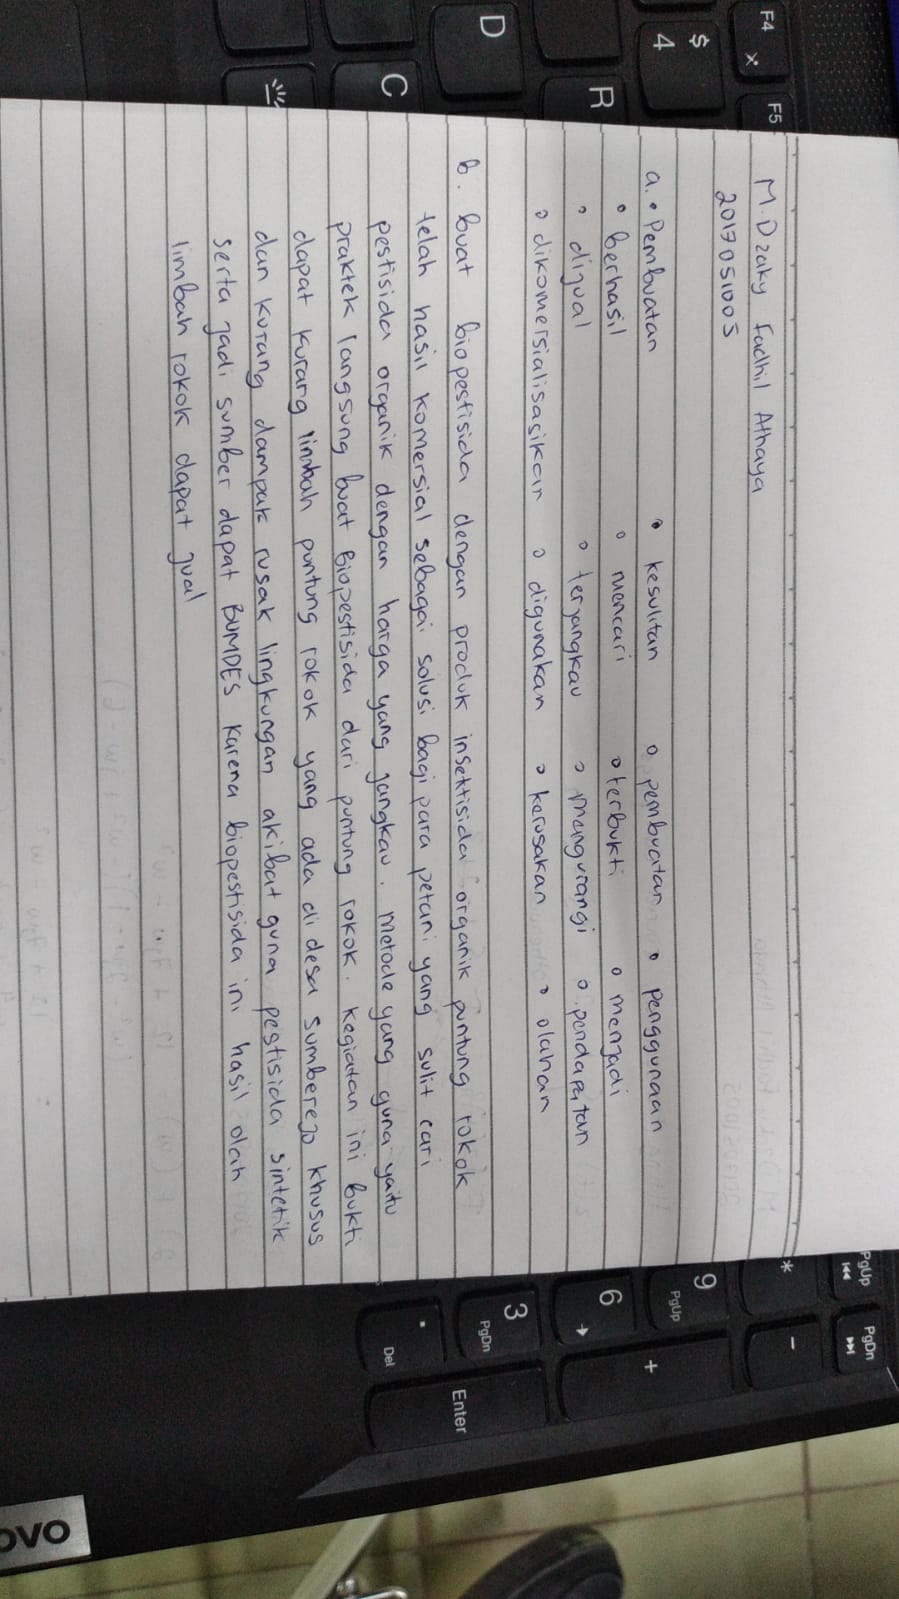 M. Dzaky Fadhil Athaya
2017051005
a. • Pembuatan • kesulitan • pembuatan • penggunaan
• berhasil • mencari • terbukti • menjadi
• dijual • terjangkau • mengurangi • pendapatan
• dikomersialisasikan • digunakan • kerusakan • olahan
b. buat biopestisida dengan produk insektisida organik puntung rokok
telah hasil komersial sebagai solusi bagi para petani yang sulit cari
pestisida organik dengan harga yang jangkau. Metode yang guna yaitu
praktek langsung buat Biopestisida dari puntung rokok. kegiatan ini bukti
dapat kurang limbah puntung rokok yang ada di desa sumberejo khusus
dan kurang dampak rusak lingkungan akibat guna pestisida sintetik
serta jadi sumber dapat BUMDES karena biopestisida ini hasil olah
limbah rokok dapat jual
F4
F5
$
4
R
D
C
PgUp
PgDn
*
-
9
PgUp
6
+
3
PgDn
.
Del
Enter
OVO